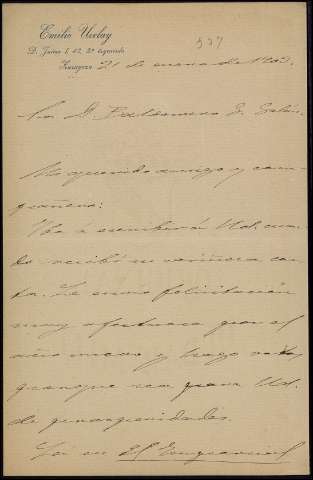 Emilio
D. Jaime I, 42, 2º izquierda
537
Zaragoza 21 de enero de 1903.
Sr. D. Baldomero G. Galán.
Mi querido amigo y com-
pañero:
Iba á escribir á Vd. cuan-
do recibí su cariñosa car-
ta. Le envío felicitación
muy afectuosa por el
año nuevo y hago votos
porque sea para Vd.
de prosperidades.
en El